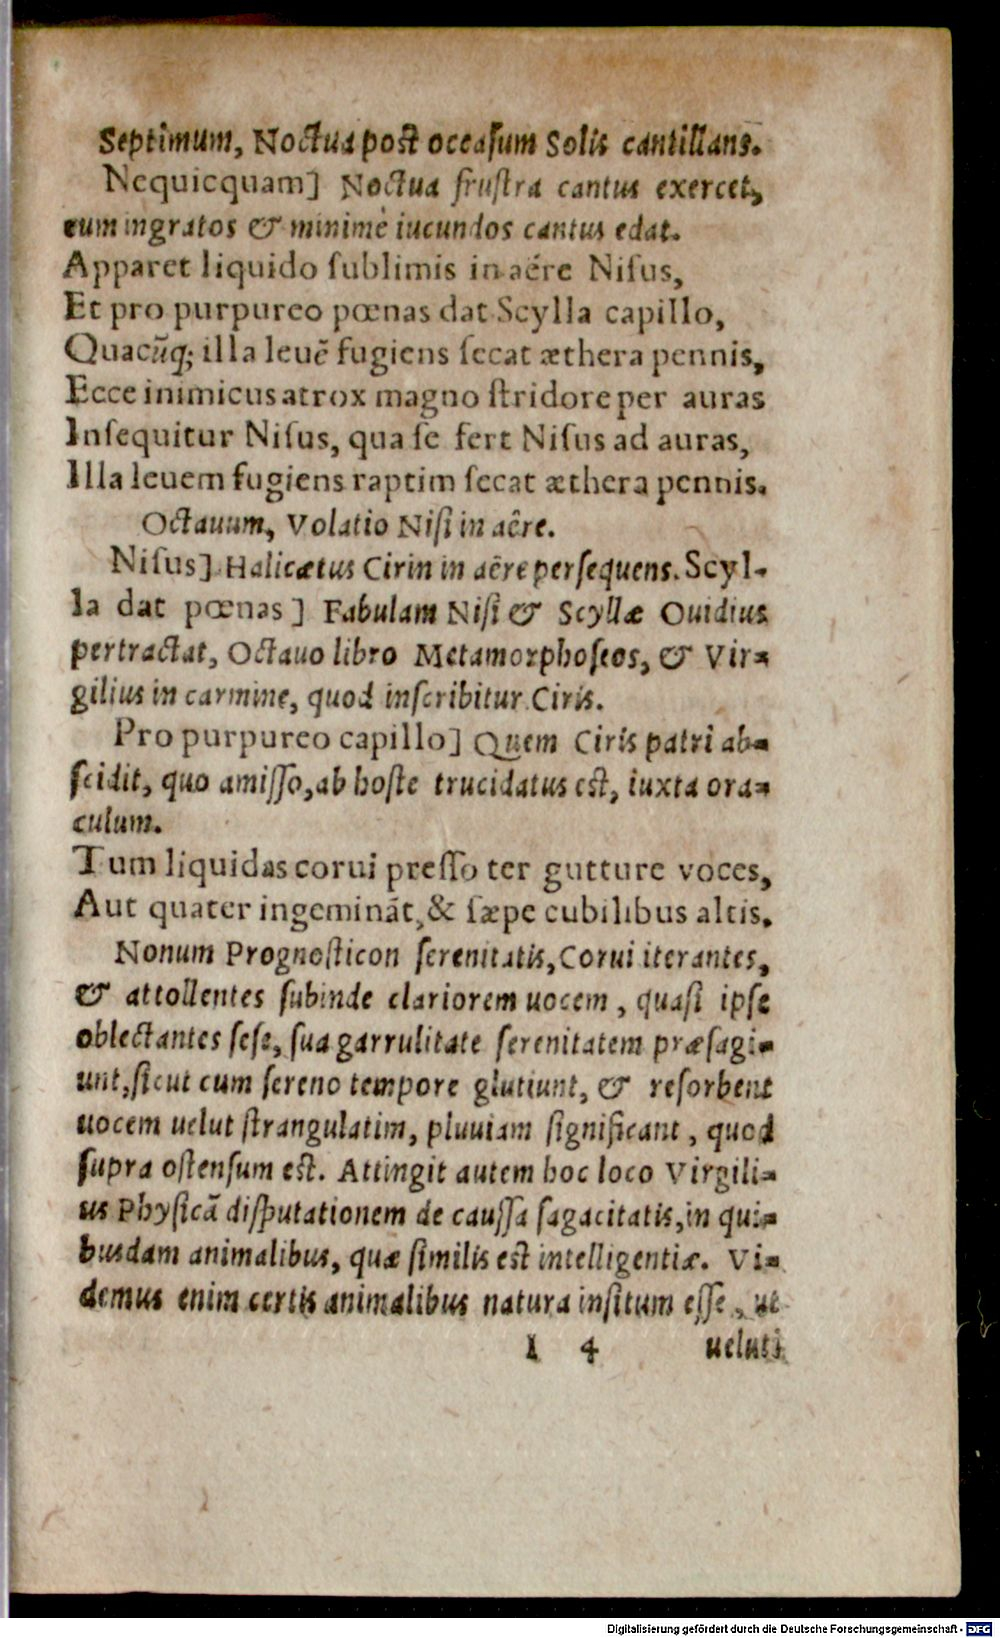 Septimum, Noctua post occasum Solis cantillans.
Nequicquam] Noctua frustra cantus exercet,
cum ingratos & minimè iucundos cantus edat.
Apparet liquido sublimis in aére Nisus,
Et pro purpureo pœnas dat Scylla capillo,
Quacũq; illa leuẽ fugiens secat æthera pennis,
Ecce inimicus atrox magno stridore per auras
Insequitur Nisus, qua se fert Nisus ad auras,
Illa leuem fugiens raptim secat æthera pennis.
Octauum, Volatio Nisi in aêre.
Nisus] Haliætus Cirin in aêre persequens. Scyl-
la dat pœnas] Fabulam Nisi & Scyllæ Ouidius
pertractat, Octauo libro Metamorphoseos, & Vir-
gilius in carmine, quod inscribitur Ciris.
Pro purpureo capillo] Quem Ciris patri ab-
scidit, quo amisso, ab hoste trucidatus est, iuxta ora-
culum.
Tum liquidas corui presso ter gutture voces,
Aut quater ingeminãt, & sæpe cubilibus altis.
Nonum Prognosticon serenitatis, Corui iterantes,
& attollentes subinde clariorem uocem, quasi ipse
oblectantes sese, sua garrulitate serenitatem præsagi-
unt, sicut cum sereno tempore glutiunt, & resorbent
uocem uelut strangulatim, pluuiam significant, quod
supra ostensum est. Attingit autem hoc loco Virgili-
us Physicã disputationem de caussa sagacitatis, in qui-
busdam animalibus, quæ similis est intelligentiæ. Vi-
demus enim certis animalibus natura insitum esse, ut
I 4 ueluti
Digitalisierung gefördert durch die Deutsche Forschungsgemeinschaft - DFG